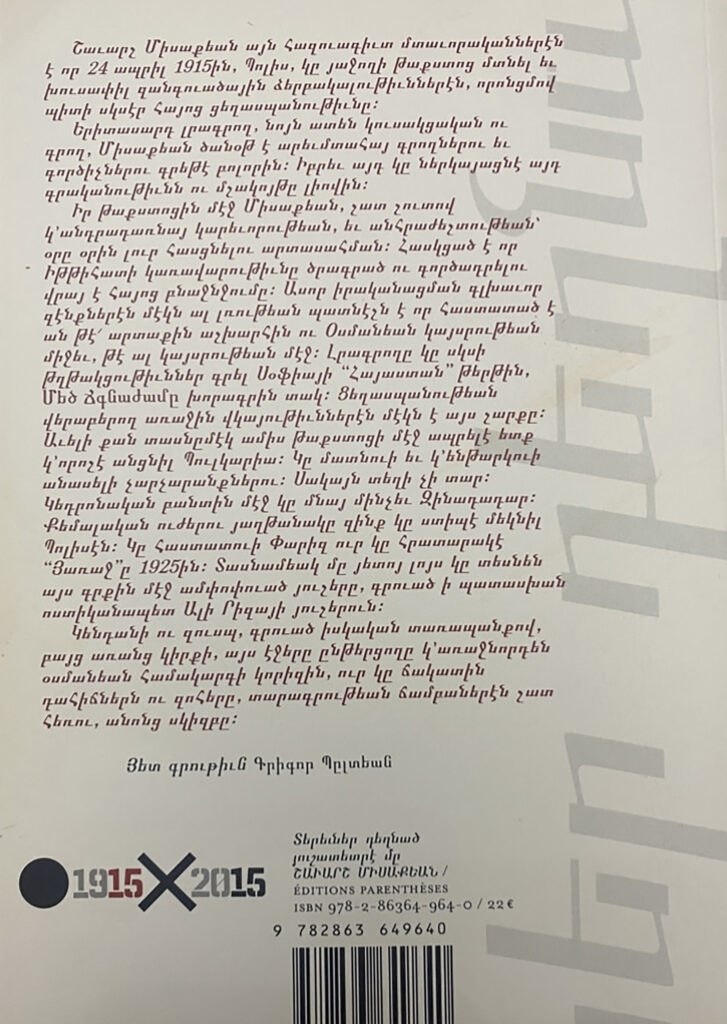 Շաւարշ Միսաքեան այն հազուագիւտ մտաւորականներէն
է որ 24 ապրիլ 1915ին, Պոլիս, կը յաջողի թաքստոց մտնել եւ
խուսափիլ զանգուածային ձերբակալութիւններէն, որոնցմով
պիտի սկսէր հայոց ցեղասպանութիւնը։
Երիտասարդ լրագրող, նոյն ատեն կուսակցական ու
գրող, Միսաքեան ծանօթ է արեւմտահայ գրողներու եւ
գործիչներու գրեթէ բոլորին։ Իբրեւ այդ կը ներկայացնէ այդ
գրականութիւնն ու մշակոյթը լիովին։
Իր թաքստոցին մէջ Միսաքեան, շատ շուտով
կ՚անդրադառնայ կարեւորութեան, եւ անհրաժեշտութեան՝
օրը օրին լուր հասցնելու արտասահման։ Հասկցած է որ
Իթթիհատի կառավարութիւնը ծրագրած ու գործադրելու
վրայ է հայոց բնաջնջումը։ Ասոր իրականացման գլխաւոր
զէնքերէն մէկն ալ լռութեան պատնէշն է որ հաստատած է
ան թէ՛ արտաքին աշխարհին ու Օսմանեան կայսրութեան
միջեւ, թէ ալ կայսրութեան մէջ։ Լրագրողը կը սկսի
թղթակցութիւններ գրել Սօֆիայի “Հայաստան” թերթին,
Մեծ Ճգնաժամը խորագրին տակ։ Ցեղասպանութեան
վերաբերող առաջին վկայութիւններէն մէկն է այս շարքը։
Աւելի քան տասնըմէկ ամիս թաքստոցի մէջ ապրելէ ետք
կ՚որոշէ անցնիլ Պուլկարիա։ Կը մատնուի եւ կ՚ենթարկուի
անասելի չարչարանքներու։ Սակայն տեղի չի տար։
Կեդրոնական բանտին մէջ կը մնայ մինչեւ Զինադադար։
Քեմալական ուժերու յաղթանակը զինք կը ստիպէ մեկնիլ
Պոլիսէն։ Կը հաստատուի Փարիզ ուր կը հրատարակէ
“Յառաջ”ը 1925ին։ Տասնամեակ մը յետոյ լոյս կը տեսնեն
այս գրքին մէջ ամփոփուած յուշերը, գրուած ի պատասխան
ոստիկանապետ Ալի Րիզայի յուշերուն։
Կենդանի ու զուսպ, գրուած իսկական տառապանքով,
բայց առանց կիրքի, այս էջերը ընթերցողը կ՚առաջնորդեն
օսմանեան համակարգի կորիզին, ուր կը ճակատին
դահիճներն ու զոհերը, տարագրութեան ճամբաներէն շատ
հեռու, անոնց սկիզբը։
Յետ գրութիւն Գրիգոր Պըլտեան
1915X2015
Տերեւներ դեղնած
յուշատետրէ մը
ՇԱՒԱՐՇ ՄԻՍԱՔԵԱՆ /
ÉDITIONS PARENTHÈSES
ISBN 978-2-86364-964-0 / 22 €
9 782863 649640